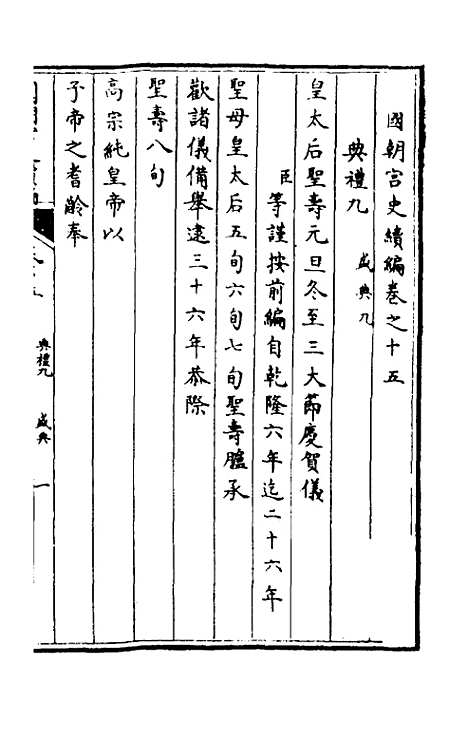 國朝宫史續編卷之十五
典禮九 盛典九
皇太后聖壽元旦冬至三大節慶賀儀
臣等謹按前編自乾隆六年迄二十六年
聖母皇太后五旬六旬七旬聖壽臚承
歡諸儀備舉逮三十六年恭際
聖壽八旬
高宗純皇帝以
子帝之耆齡奉
典禮九 盛典 一